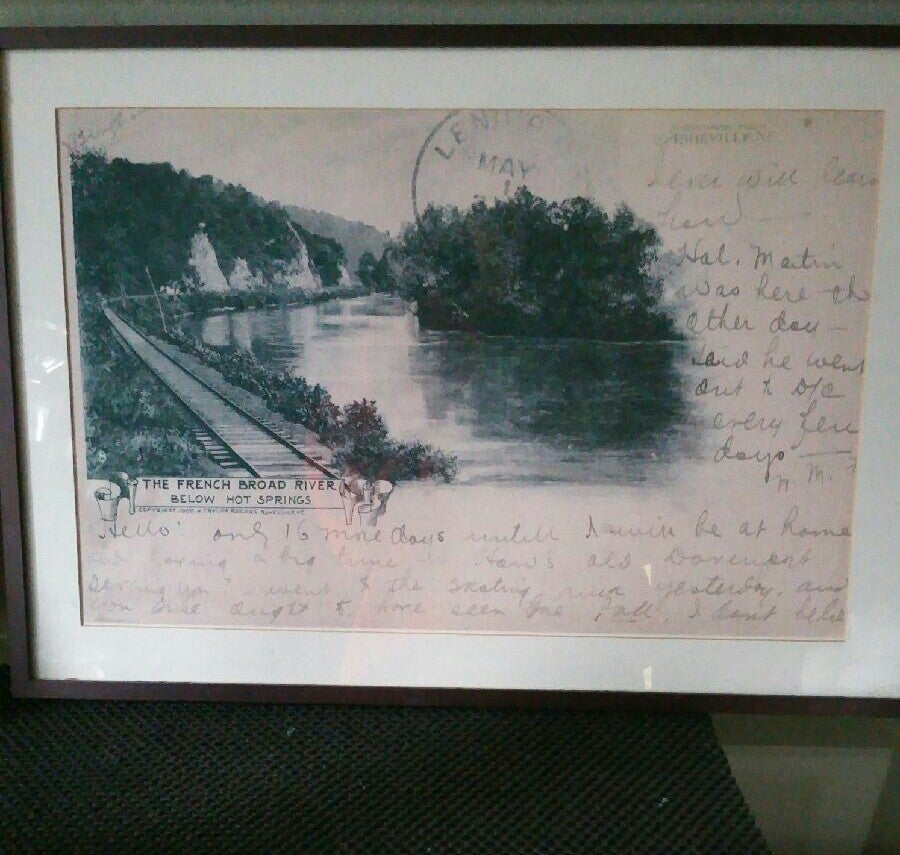 LENO
MAY
1
ASHEVILLE N.C.
will
Hal. Martin
was here
other day —
said he went
out to D/C
every few
days —
THE FRENCH BROAD RIVER
BELOW HOT SPRINGS
"Hello" only 16 more days untill I will be at home
and having a big time. How's old Davenport
serving you? I went to the skating rink yesterday, and
you ought to have seen me fall, I don't